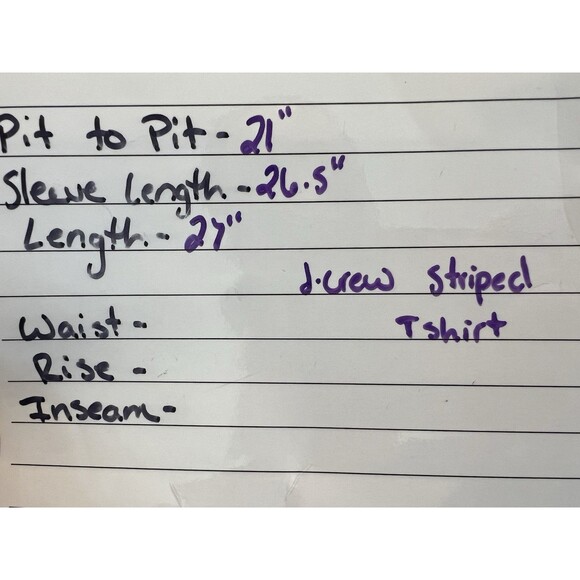 Pit to Pit - 21"
Sleeve Length - 26.5"
Length - 27"
J.Crew Striped
Tshirt
Waist -
Rise -
Inseam -